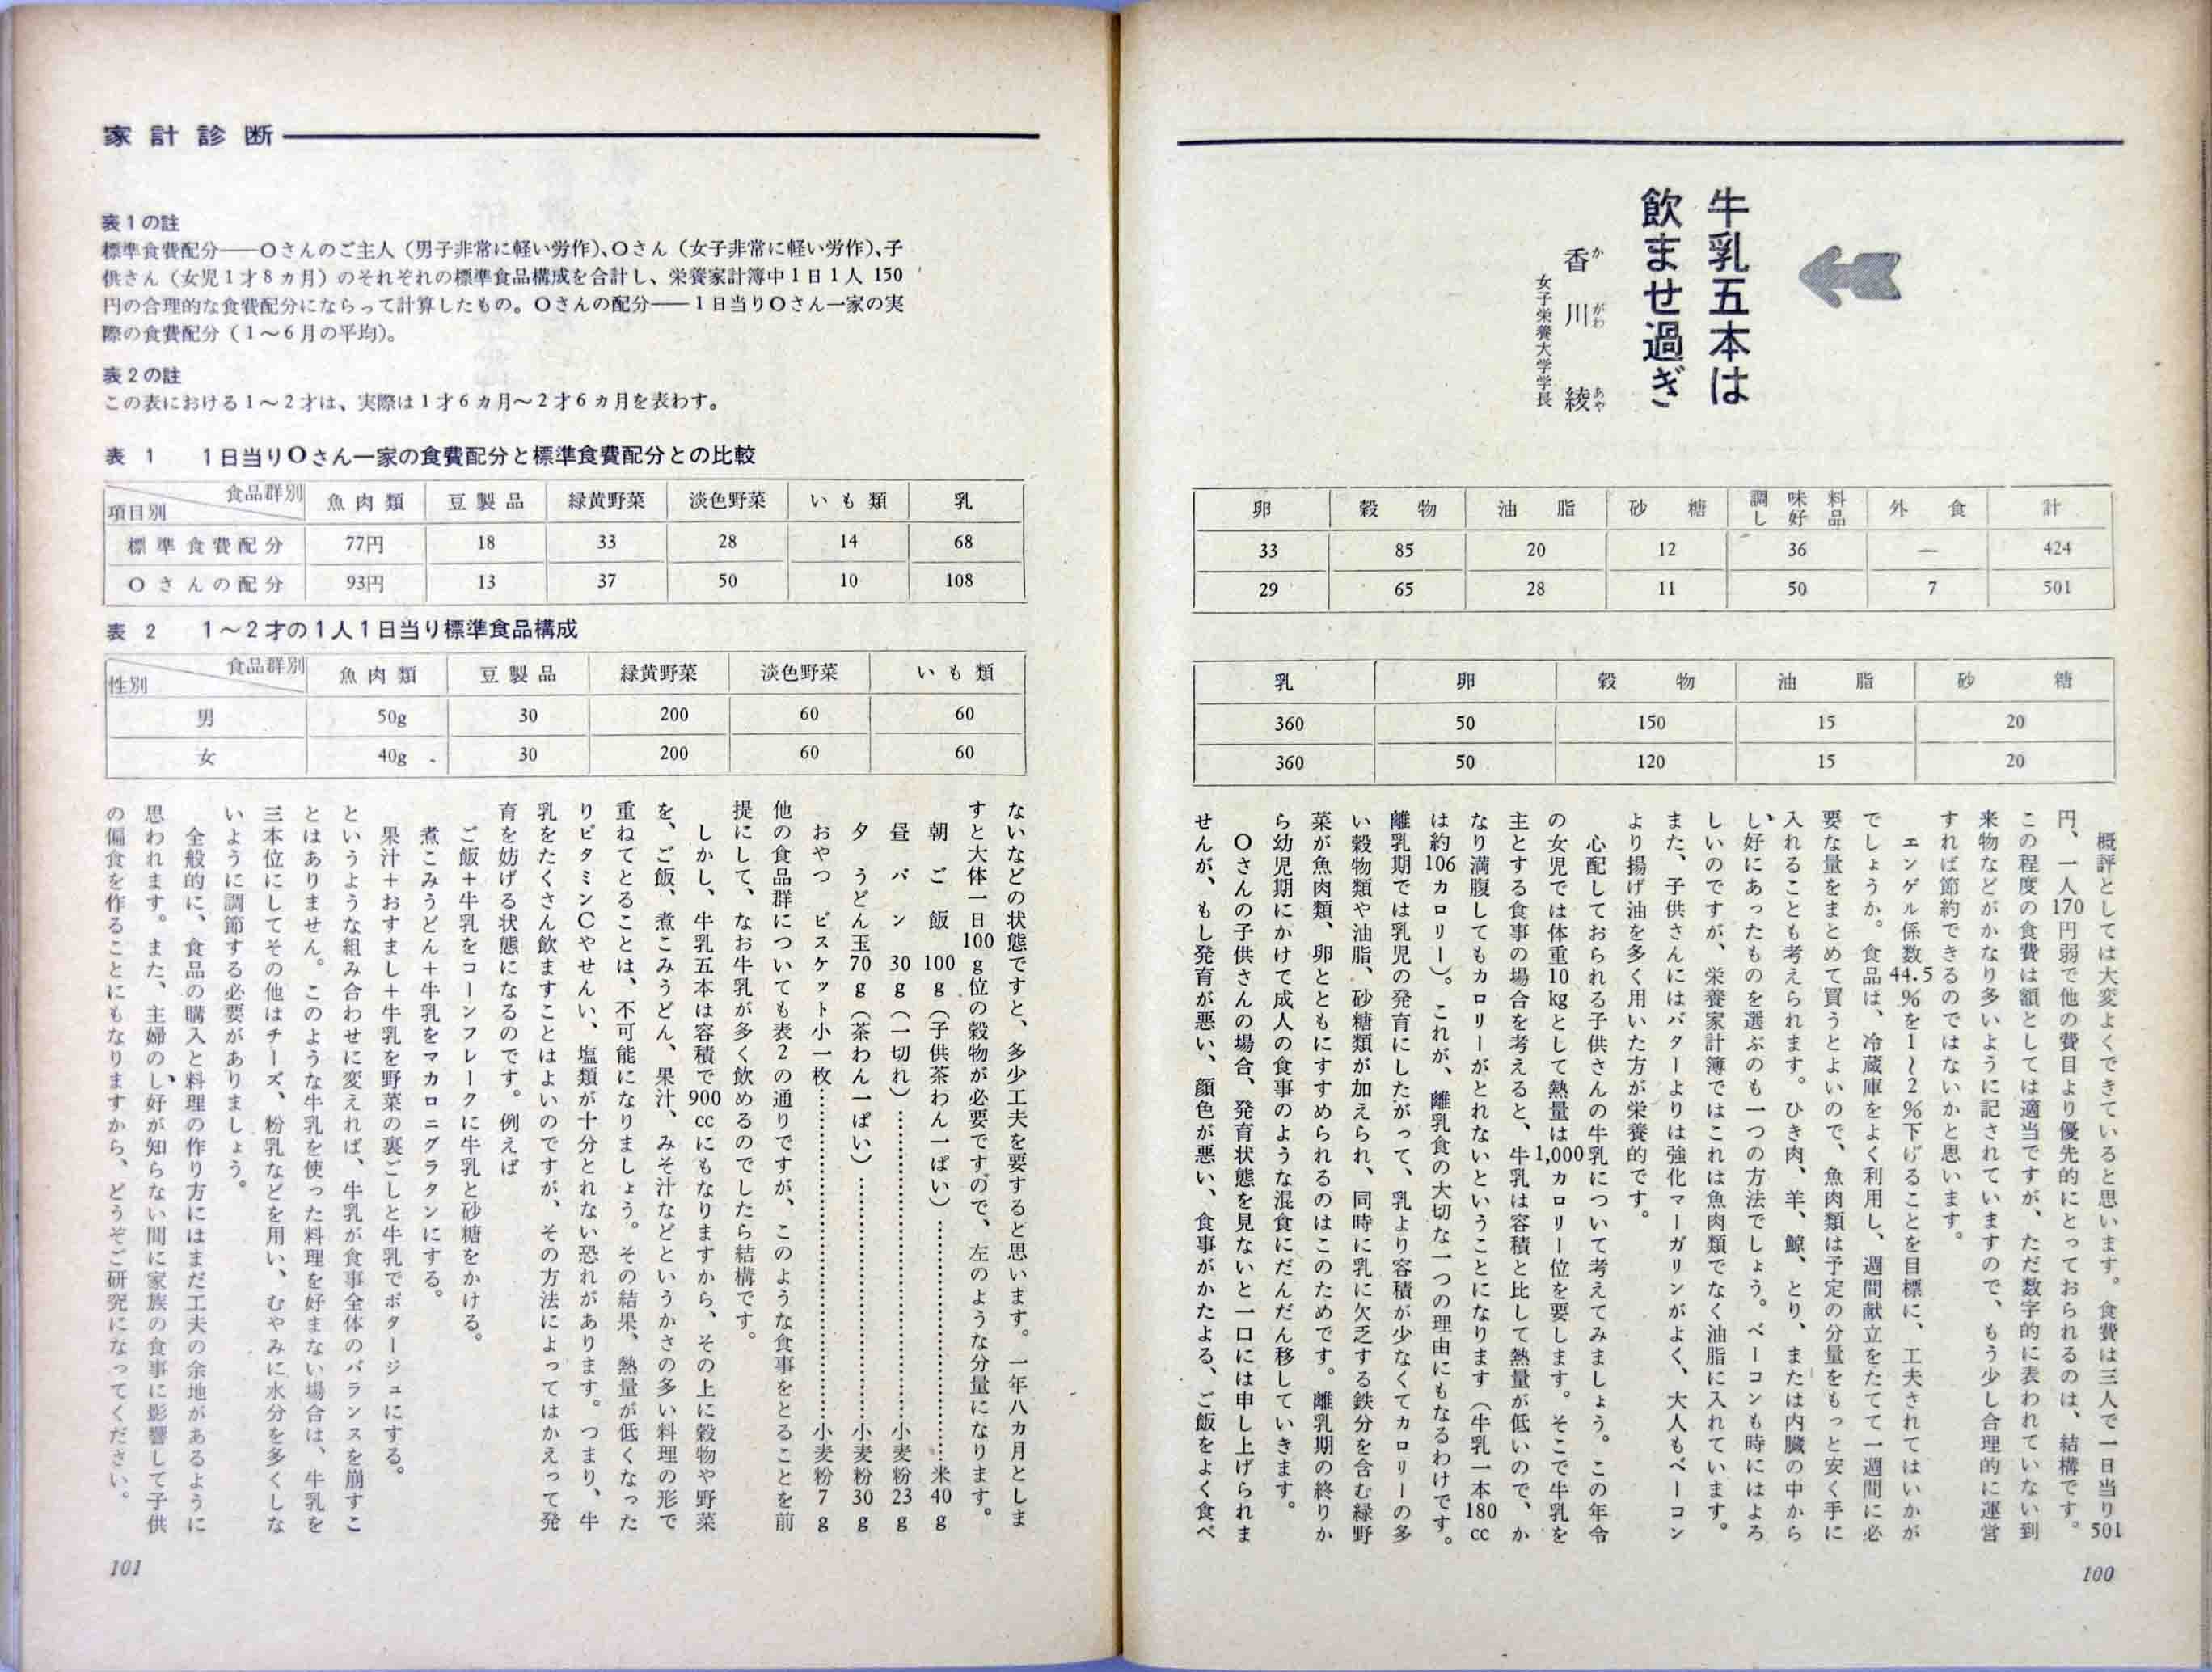 牛乳五本は
飲ませ過ぎ
香川綾
かがわあや
女子栄養大学学長
卵 穀物 油脂 砂糖 調味料し好品 外食 計
33 85 20 12 36 — 424
29 65 28 11 50 7 501
乳 卵 穀物 油脂 砂糖
360 50 150 15 20
360 50 120 15 20
概評としては大変よくできていると思います。食費は三人で一日当り501
円、一人170円弱で他の費目より優先的にとっておられるのは、結構です。
この程度の食費は額としては適当ですが、ただ数字的に表われていない到
来物などがかなり多いように記されていますので、もう少し合理的に運営
すれば節約できるのではないかと思います。
エンゲル係数44.5％を1〜2％下げることを目標に、工夫されてはいかが
でしょうか。食品は、冷蔵庫をよく利用し、週間献立をたてて一週間に必
要な量をまとめて買うとよいので、魚肉類は予定の分量をもっと安く手に
入れることも考えられます。ひき肉、羊、鯨、とり、または内臓の中から
し好にあったものを選ぶのも一つの方法でしょう。ベーコンも時にはよろ
しいのですが、栄養家計簿ではこれは魚肉類でなく油脂に入れています。
また、子供さんにはバターよりは強化マーガリンがよく、大人もベーコン
より揚げ油を多く用いた方が栄養的です。
心配しておられる子供さんの牛乳について考えてみましょう。この年令
の女児では体重10kgとして熱量は1,000カロリー位を要します。そこで牛乳を
主とする食事の場合を考えると、牛乳は容積と比して熱量が低いので、か
なり満腹してもカロリーがとれないということになります（牛乳一本180cc
は約106カロリー）。これが、離乳食の大切な一つの理由にもなるわけです。
離乳期では乳児の発育にしたがって、乳より容積が少なくてカロリーの多
い穀物類や油脂、砂糖類が加えられ、同時に乳に欠乏する鉄分を含む緑野
菜が魚肉類、卵とともにすすめられるのはこのためです。離乳期の終りか
ら幼児期にかけて成人の食事のような混食にだんだん移していきます。
Ｏさんの子供さんの場合、発育状態を見ないと一口には申し上げられま
せんが、もし発育が悪い、顔色が悪い、食事がかたよる、ご飯をよく食べ
100
家計診断
表1の註
標準食費配分——Ｏさんのご主人（男子非常に軽い労作）、Ｏさん（女子非常に軽い労作）、子
供さん（女児1才8ヵ月）のそれぞれの標準食品構成を合計し、栄養家計簿中1日1人150
円の合理的な食費配分にならって計算したもの。Ｏさんの配分——1日当りＯさん一家の実
際の食費配分（1〜6月の平均）。
表2の註
この表における1〜2才は、実際は1才6ヵ月〜2才6ヵ月を表わす。
表1 1日当りＯさん一家の食費配分と標準食費配分との比較
項目別 食品群別 魚肉類 豆製品 緑黄野菜 淡色野菜 いも類 乳
標準食費配分 77円 18 33 28 14 68
Ｏさんの配分 93円 13 37 50 10 108
表2 1〜2才の1人1日当り標準食品構成
性別 食品群別 魚肉類 豆製品 緑黄野菜 淡色野菜 いも類
男 50g 30 200 60 60
女 40g 30 200 60 60
ないなどの状態ですと、多少工夫を要すると思います。一年八カ月としま
すと大体一日100ｇ位の穀物が必要ですので、左のような分量になります。
朝 ご飯 100ｇ（子供茶わん一ぱい）……………米40ｇ
昼 パン 30ｇ（一切れ）……………小麦粉23ｇ
夕 うどん玉70ｇ（茶わん一ぱい）……………小麦粉30ｇ
おやつ ビスケット小一枚……………小麦粉7ｇ
他の食品群についても表2の通りですが、このような食事をとることを前
提にして、なお牛乳が多く飲めるのでしたら結構です。
しかし、牛乳五本は容積で900ccにもなりますから、その上に穀物や野菜
を、ご飯、煮こみうどん、果汁、みそ汁などというかさの多い料理の形で
重ねてとることは、不可能になりましょう。その結果、熱量が低くなった
りビタミンＣやせんい、塩類が十分とれない恐れがあります。つまり、牛
乳をたくさん飲ますことはよいのですが、その方法によってはかえって発
育を妨げる状態になるのです。例えば
ご飯＋牛乳をコーンフレークに牛乳と砂糖をかける。
煮こみうどん＋牛乳をマカロニグラタンにする。
果汁＋おすまし＋牛乳を野菜の裏ごしと牛乳でポタージュにする。
というような組み合わせに変えれば、牛乳が食事全体のバランスを崩すこ
とはありません。このような牛乳を使った料理を好まない場合は、牛乳を
三本位にしてその他はチーズ、粉乳などを用い、むやみに水分を多くしな
いように調節する必要がありましょう。
全般的に、食品の購入と料理の作り方にはまだ工夫の余地があるように
思われます。また、主婦のし好が知らない間に家族の食事に影響して子供
の偏食を作ることにもなりますから、どうぞご研究になってください。
101